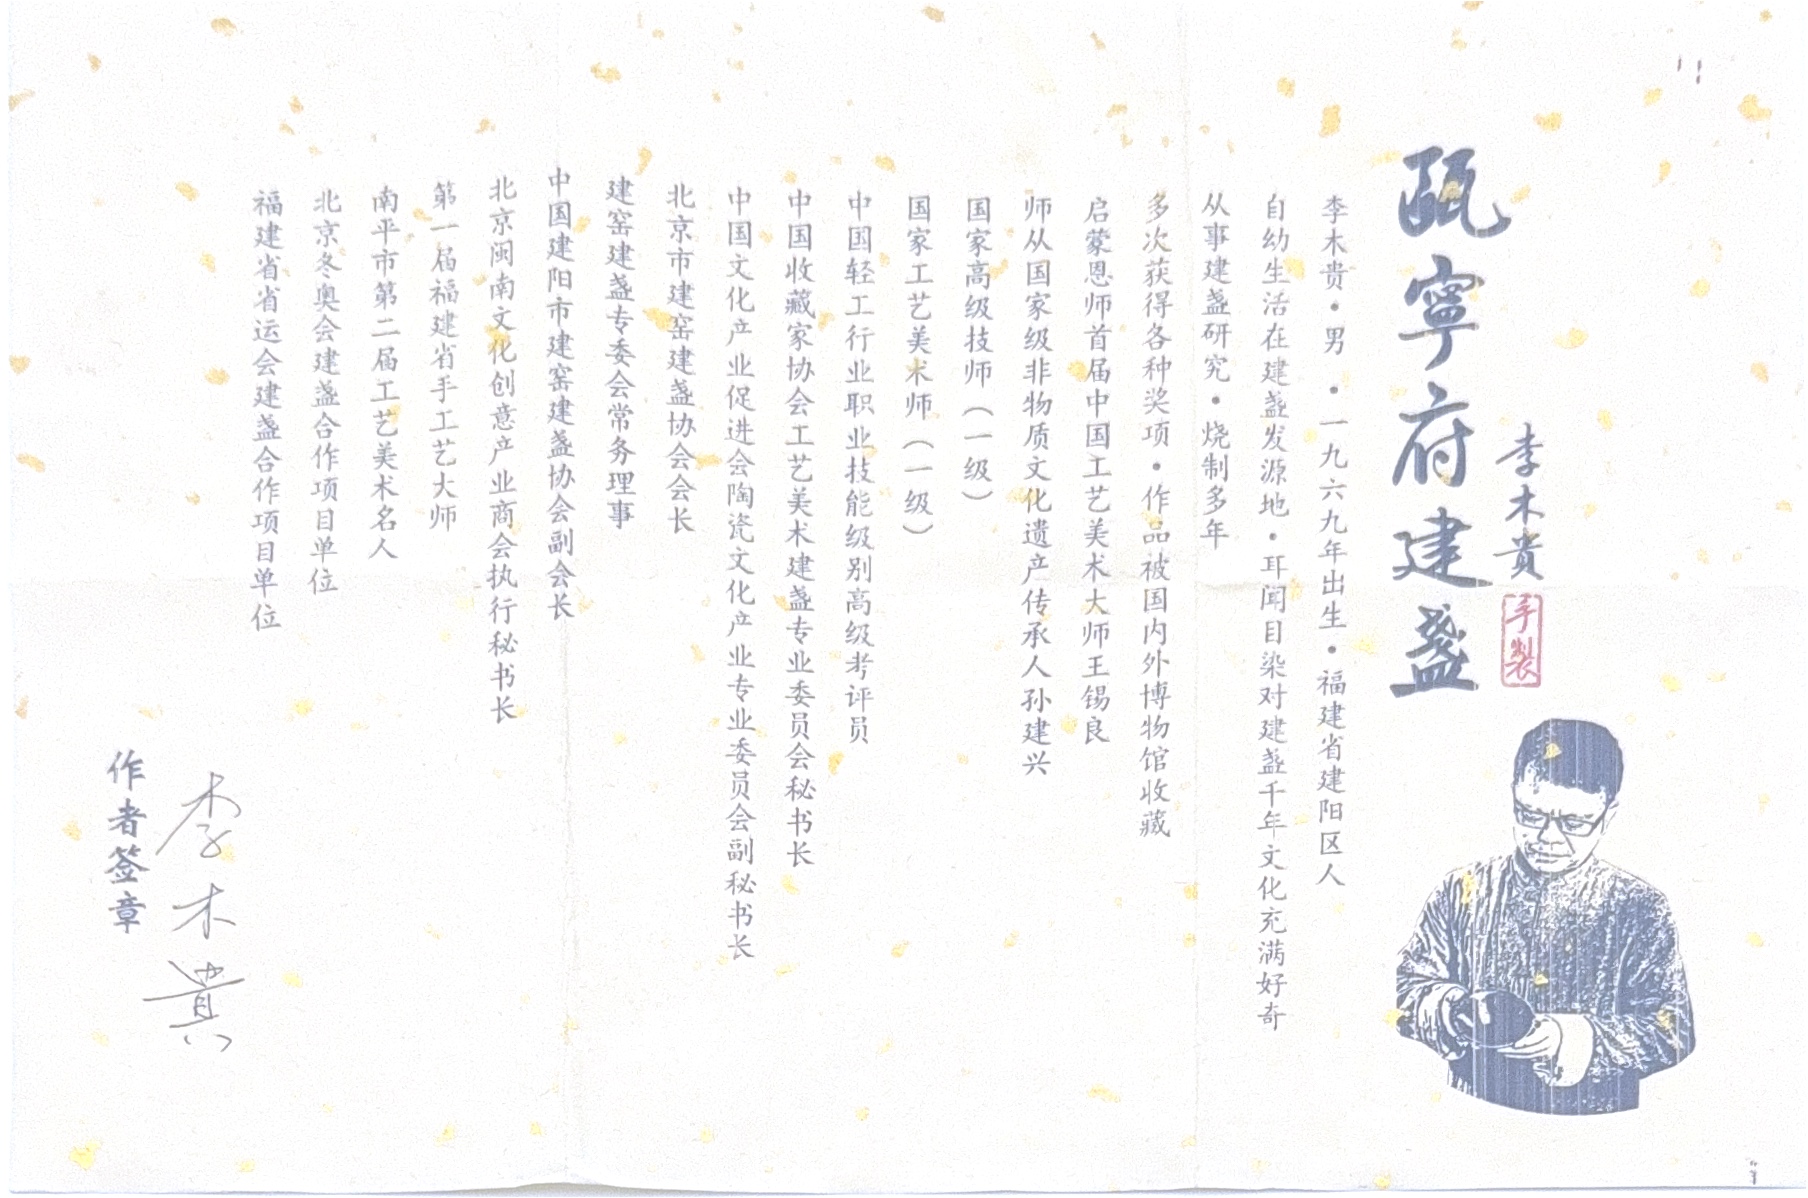 李木贵
手製
瓯寧府建盏
李木贵·男·一九六九年出生·福建省建阳区人
自幼生活在建盏发源地·耳闻目染对建盏千年文化充满好奇
从事建盏研究·烧制多年
多次获得各种奖项·作品被国内外博物馆收藏
启蒙恩师首届中国工艺美术大师王锡良
师从国家级非物质文化遗产传承人孙建兴
国家高级技师（一级）
国家工艺美术师（一级）
中国轻工行业职业技能级别高级考评员
中国收藏家协会工艺美术建盏专业委员会秘书长
中国文化产业促进会陶瓷文化产业专业委员会副秘书长
北京市建窑建盏协会会长
建窑建盏专委会常务理事
中国建阳市建窑建盏协会副会长
北京闽南文化创意产业商会执行秘书长
第一届福建省手工艺大师
南平市第二届工艺美术名人
北京冬奥会建盏合作项目单位
福建省省运会建盏合作项目单位
李木貴
作者签章